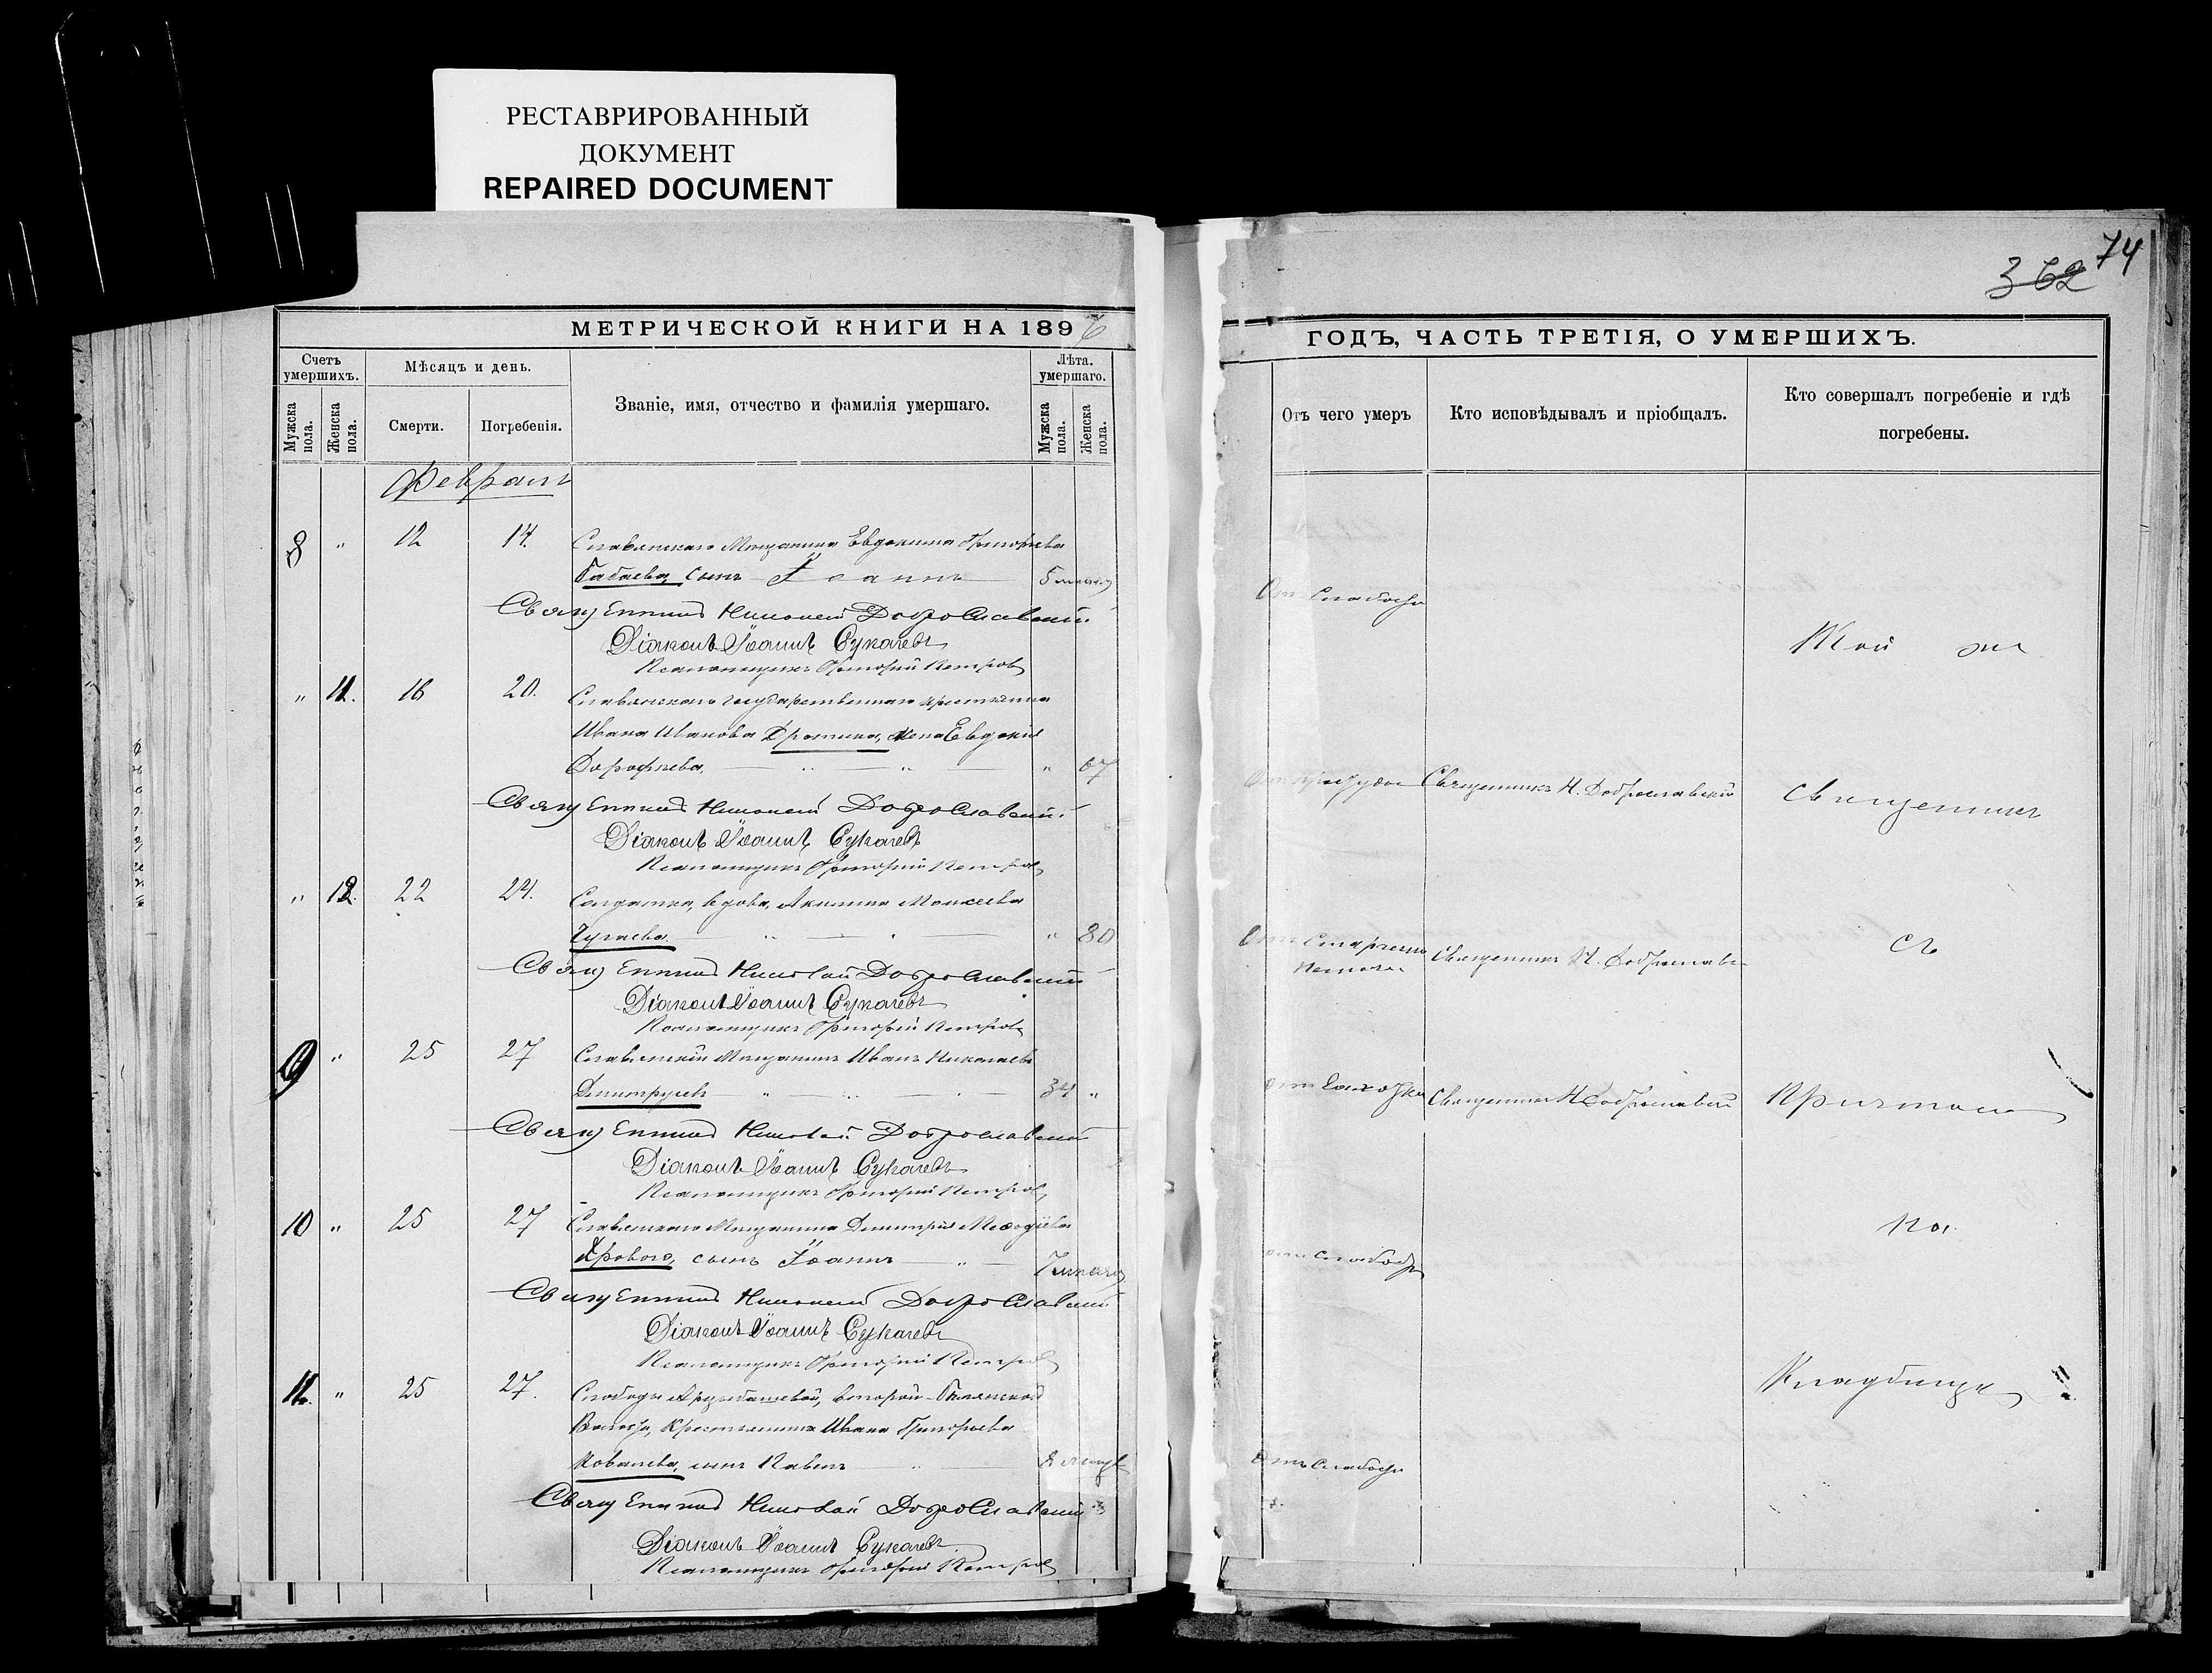 РЕСТАВРИРОВАННЫЙ
ДОКУМЕНТ
REPAIRED DOCUMENT
74
362
МЕТРИЧЕСКОЙ КНИГИ НА 1896
ГОДЪ, ЧАСТЬ ТРЕТІЯ, О УМЕРШИХЪ.
Счетъ умершихъ.
Мѣсяцъ и день.
Званіе, имя, отчество и фамилія умершаго.
Лѣта. умершаго.
Мужска пола.
Женска пола.
Смерти.
Погребенія.
Мужска пола.
Женска пола.
Отъ чего умеръ
Кто исповѣдывалъ и пріобщалъ.
Кто совершалъ погребеніе и гдѣ
погребены.
Февраль
8 " 12 14. Славянскаго Мѣщанина Евдокима Григорьева
Бабаева, сынъ Іоаннъ
Отъ слабости
Священникъ Николай Доброславскій
Той же
Діаконъ Іоаннъ Сукачевъ
Псаломщикъ Григорій Петровъ
" 11. 16 20. Славянскаго государственнаго крестьянина
Ивана Иванова жена Евдокія
Дорофеева, " 67
Священникъ Н. Доброславскій
Священникъ
Священникъ Николай Доброславскій
Діаконъ Іоаннъ Сукачевъ
Псаломщикъ Григорій Петровъ
" 12. 22 24. Солдатка, вдова, Акилина Моисеева
Чугаева " 80
Отъ старческой
Священникъ Н. Доброславс
съ
Священникъ Николай Доброславскій
Діаконъ Іоаннъ Сукачевъ
Псаломщикъ Григорій Петровъ
9 " 25 27 Славянскій Мѣщанинъ Иванъ Николаевъ
34 "
отъ чахотки
Священникъ Н Доброславскій
Причтомъ
Священникъ Николай Доброславскій
Діаконъ Іоаннъ Сукачевъ
Псаломщикъ Григорій Петровъ
10 " 25 27 Славянскаго Мѣщанина Димитрія Меѳодіева
сынъ Іоаннъ
отъ слабости
на
Священникъ Николай Доброславскій
Діаконъ Іоаннъ Сукачевъ
Псаломщикъ Григорій Петровъ
11. " 25 27. Слободы второй
Волости, Крестьянина Ивана Григорьева
Ковалева, сынъ Павелъ
Отъ слабости
Кладбищѣ
Священникъ Николай Доброславскій
Діаконъ Іоаннъ Сукачевъ
Псаломщикъ Григорій Петровъ